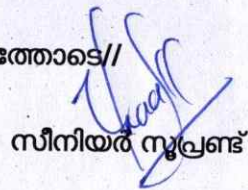 ത്തോടെ//
സീനിയർ സൂപ്രണ്ട്